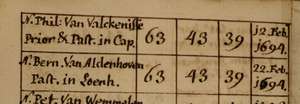 N. Phil: Van Valckenisse 12 Feb.
Prior & Past. in Cap. 63 43 39 1694.
N. Bern. Van Aldenhoven 22 Feb.
Past. in Loenh. 63 43 39 1694.
N. Pet. Van